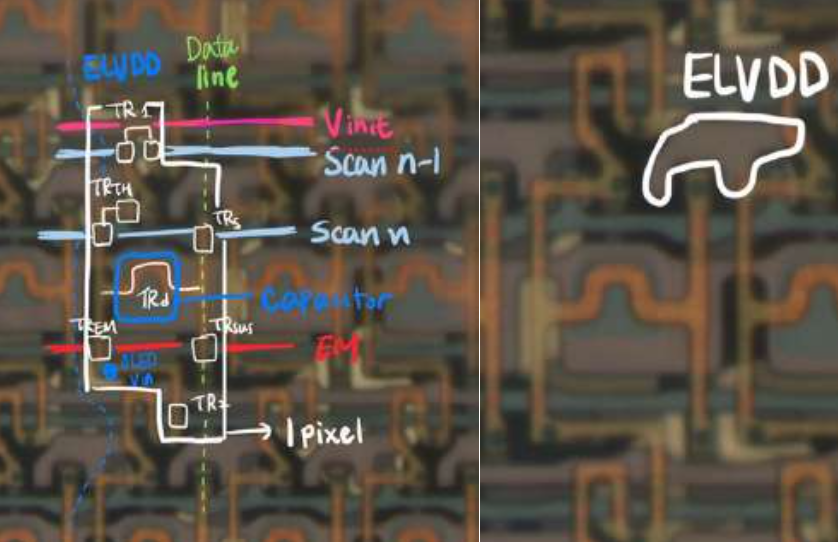 ELVDD
Data
line
TR1
Vinit
Scan n-1
TRTH
TRS
Scan n
TRd
Capacitor
TREM
TRSUS
EM
OLED
VIA
TR
1 pixel
ELVDD